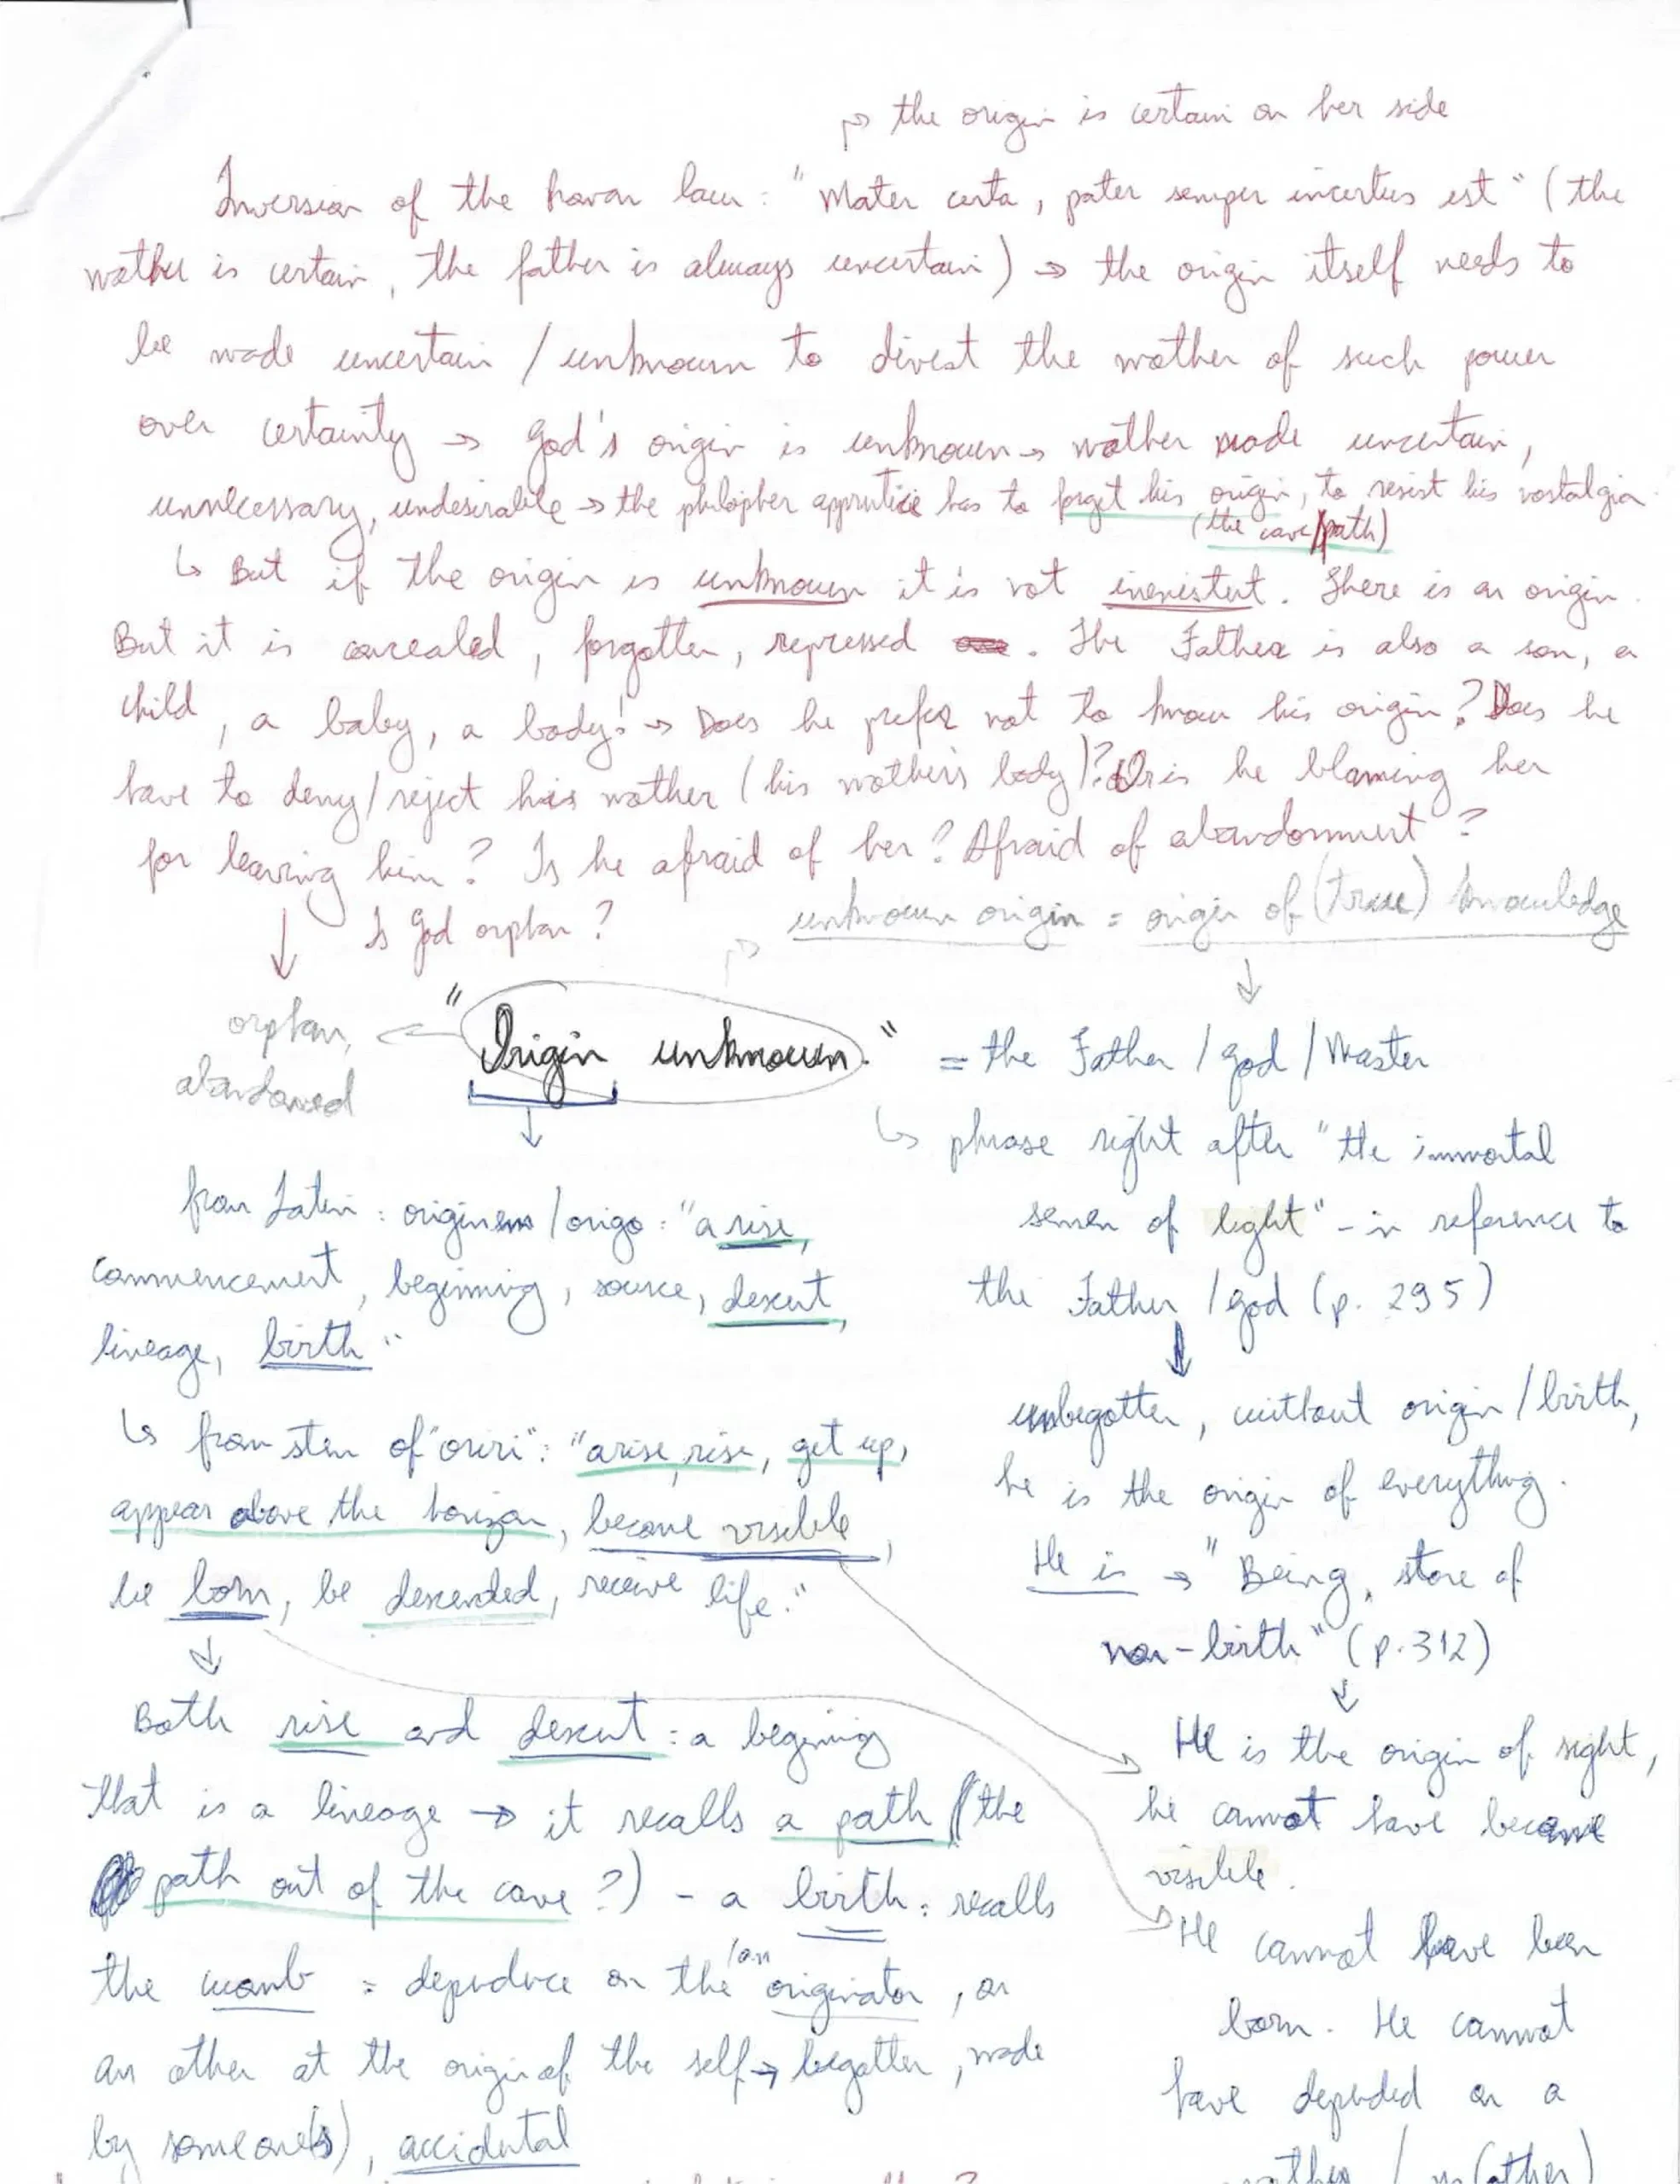 → the origin is certain on her side
Inversion of the Roman law: "Mater certa, pater semper incertus est" (the
mother is certain, the father is always uncertain) → the origin itself needs to
be made uncertain / unknown to divest the mother of such power
over certainty → God's origin is unknown → mother made uncertain,
unnecessary, undesirable → the philopher apprentice has to forget his origin, to resist his nostalgia.
(the cave/path)
↳ But if the origin is unknown it is not inexistent. There is an origin.
But it is concealed, forgotten, repressed. The Father is also a son, a
child, a baby, a body! → Does he prefer not to know his origin? Does he
have to deny/reject his mother (his mother's body)? Or is he blaming her
for leaving him? Is he afraid of her? Afraid of abandonment?
↓ Is God orphan?
unknown origin = origin of (true) knowledge
orphan,
abandoned
"Origin unknown." = the Father / god / Master
↳ phrase right after "the immortal
semen of light" - in reference to
the Father / god (p. 295)
↓
unbegotten, without origin / birth,
he is the origin of everything.
He is → "Being, store of
non-birth" (p. 312)
↓
He is the origin of sight,
he cannot have became
visible.
He cannot have been
born. He cannot
have depended on a
mother / m(other)
from Latin: originem/origo: "a rise,
commencement, beginning, source, descent,
lineage, birth"
↳ from stem of "oriri": "arise, rise, get up,
appear above the horizon, become visible,
be born, be descended, receive life."
↓
Both rise and descent: a begining
that is a lineage → it recalls a path (the
path out of the cave?) - a birth: recalls
the womb = dependence on the /an originator, on
an other at the origin of the self → begotten, made
by someone(s), accidental